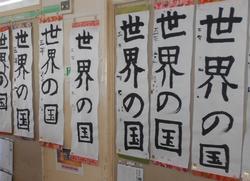 世界の国
世界の国
世界の国
世界の国
世界の国
世界の国
世界の国